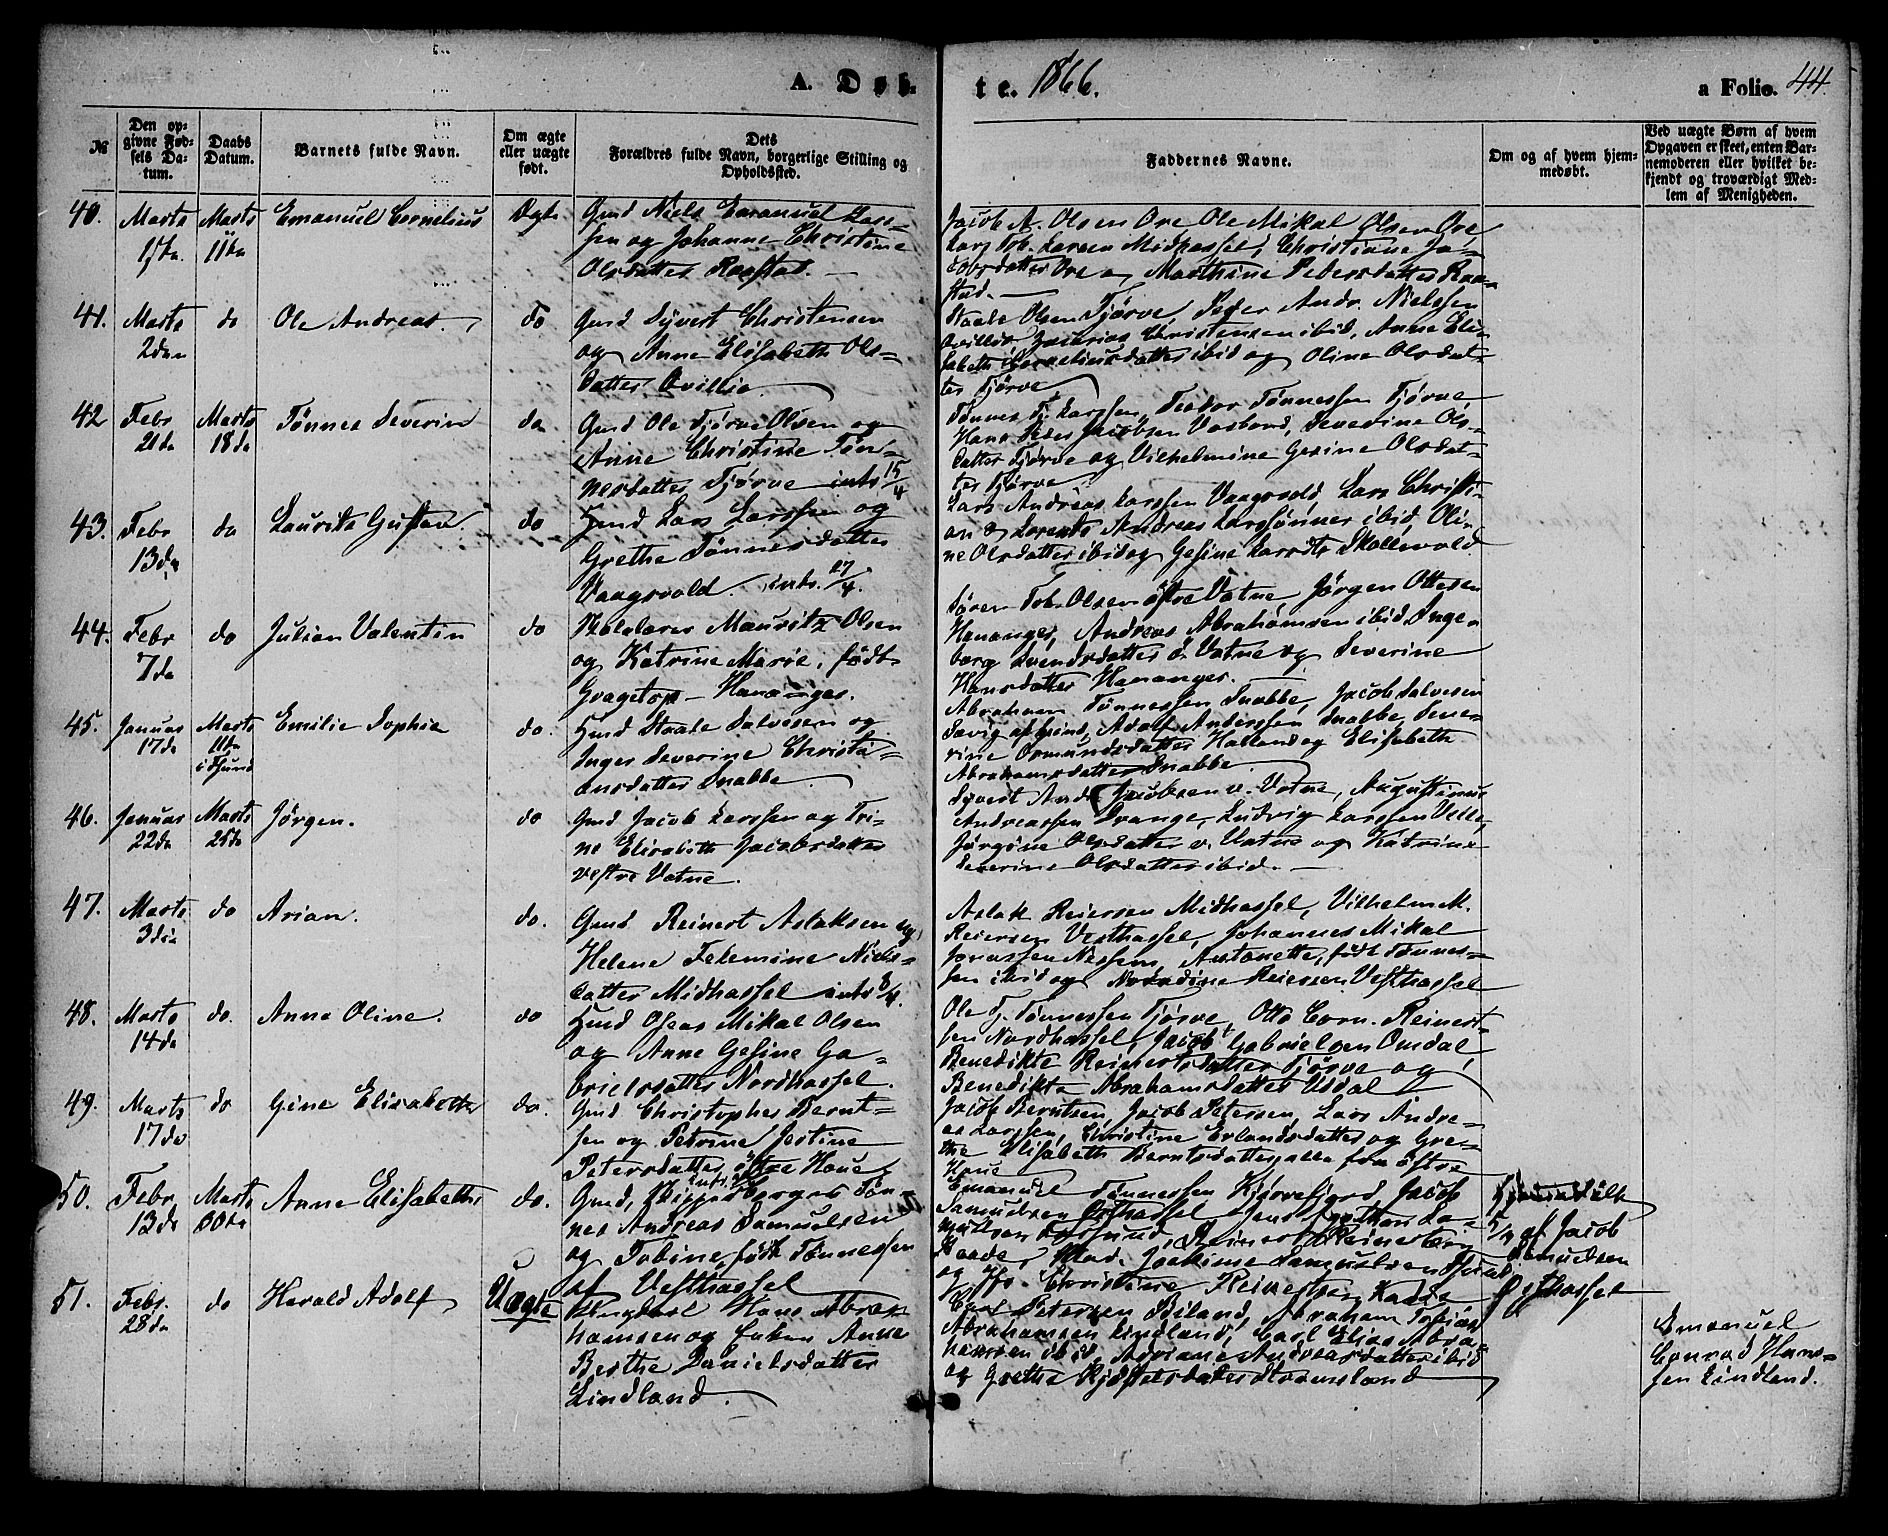 A. Døb-
te. 1866.
a Folio. 44.
№
Den op-
givne Fød-
sels Da-
tum.
Daabs
Datum.
Barnets fulde Navn.
Om ægte
eller uægte
født.
Dets
Forældres fulde Navn, borgerlige Stilling og
Opholdssted.
Faddernes Navne.
Om og af hvem hjem-
medøbt.
Ved uægte Børn af hvem
Opgaven er skeet, enten Bar-
nemoderen eller hvilket be-
kjendt og troværdigt Med-
lem af Menigheden.
40.
Marts
Marts
11te
Emanuel Cornelius
Ægte
Gmd Niels Emanuel Lars-
sen og Johanne Christine
Olsdatter Raastad.
Jacob A. Olsen Ore, Ole Mikal Olsen Ore,
Lars Tob. Larsen Midhassel, Christiane Ja-
cobsdatter Ore og Marthine Pedersdatter Raa-
stad.
41.
Marts
2den
do
Ole Andreas.
do
Gmd Syvert Christensen
og Anne Elisabeth Ols-
datter Qvillio
Staale Olsen Tjørve, Peder Andr. Nielssen
Qvillio, Zacarias Christensen ibid, Anne Eli-
sabeth Corneliusdatter ibid og Oline Olsdat-
ter Tjørve
42
Febr
21de
Marts
18de
Tønnes Severin
do
Gmd Ole Tjørve Olsen og
Anne Christine Tøn-
nesdatter Tjørve intr 15/4
Tønnes Tj. Larssen, Teodor Tønnessen Tjørve
Hans Peder Jacobsen Vasbond, Sevedine Ols-
datter Tjørve og Vilhelmine Gesine Olsdat-
ter Tjørve
43.
Febr
13de
do
Laurits Gustav.
do
Hmd Lars Larssen og
Grethe Tønnesdatter
Vaagsvold. intr. 27/4.
Lars Andreas Larssen Vaagsvold, Lars Christi-
an & Lorents Andreas Larssønner ibid, Oli-
ne Olsdatter ibid og Gesine Larsdtr Skollevold
44.
Febr
7de
do
Julian Valentin
do
Skolelærer Mauritz Olsen
og Katrine Marie, født
Gragetop - Hananger.
Søren Tob. Olsen østre Vatne Jørgen Ottesen
Hananger, Andreas Abrahamsen ibid, Inge-
borg Svendsdatter ø. Vatne og Severine
Hansdatter Hananger.
45.
Januar
17de
Marts
11te
i Fsund
Emilie Sophie
do.
Hmd Staale Salvesen og
Inger Severine Christi-
ansdatter Snabbe
Abraham Tønnessen Snabbe, Jacob Salvesen
Adolf Anderssen Snabbe, Seve-
rine Osmundsdatter Halland og Elisabeth
Abrahamsdatter Snabbe
46.
Januar
22de
Marts
25de
Jørgen.
do
Gmd Jacob Larssen og Tri-
ne Elisabeth Jacobsdatter
vestre Vatne.
Syvert Andr. Jacobsen v. Vatne, Augustinus
Andreassen Prange, Ludvig Larssen Velle,
Jørgine Olsdatter v. Vatne og Katrine
Severine Olsdatter ibid.
47.
Marts
3die
do
Arian.
do.
Gmd Reinert Aslaksen og
Helene Felemine Niels-
datter Midhassel intr 8/4.
Aslak Reiersen Midhassel, Vilhelm M.
Reiersen Vesthassel, Johannes Mikal
Jonassen Nessem, Antonette, født Tønnes-
sen ibid og Reiersen Vesthassel
48.
Marts
14de
do.
Anne Oline.
do
Hmd Oseas Mikal Olsen
og Anne Gesine Ga-
brielsdatter Nordhassel.
Ole Tj. Tønnessen Tjørve, Otto Corn. Reinert-
sen Nordhassel, Jacob Gabrielsen Omdal,
Benedikte Reinertsdatter Tjørve og
Benedikte Abrahamsdatter Usdal
49.
Marts
17de
do
Gine Elisabeth
do.
Gmd Christopher Bernt-
sen og Petrine Jestine
Petersdatter østre Haue
Jacob Berntsen, Jacob Petersen, Lars Andre-
as Larssen, Christine Erlandsdatter og Gre-
the Elisabeth Berntsdatter, alle fra østre
Haue
50.
Febr
13de
Marts
30te
Anne Elisabeth
do.
Gmd, Skipperborger Tøn-
nes Andreas Samuelsen
og Tobine, født Tønnessen
af Vesthassel
Emanuel Tønnessen Kjørrefjord, Jacob
Samuelsen Østhassel, Jens Jonathan Sa-
muelsen Farsund, Reinert Reinertsen
og Jfr. Christine Reinertsen Kaade
Hjemmedøbt
5/3 af Jacob
Samuelsen
Østhassel
51.
Febr.
28de
do
Harald Adolf
Uægte
Ungkarl Hans Abra-
hamsen og Enken Anne
Berthe Danielsdatter
Lindland.
Carl Petersen Beiland, Abraham Tobias
Abrahamsen Lindland, Carl Elias Abra-
hamsen ibid, Adriane Andreasdatter ibid
og Grethe
Emanuel
Conrad Hans-
sen Lindland.